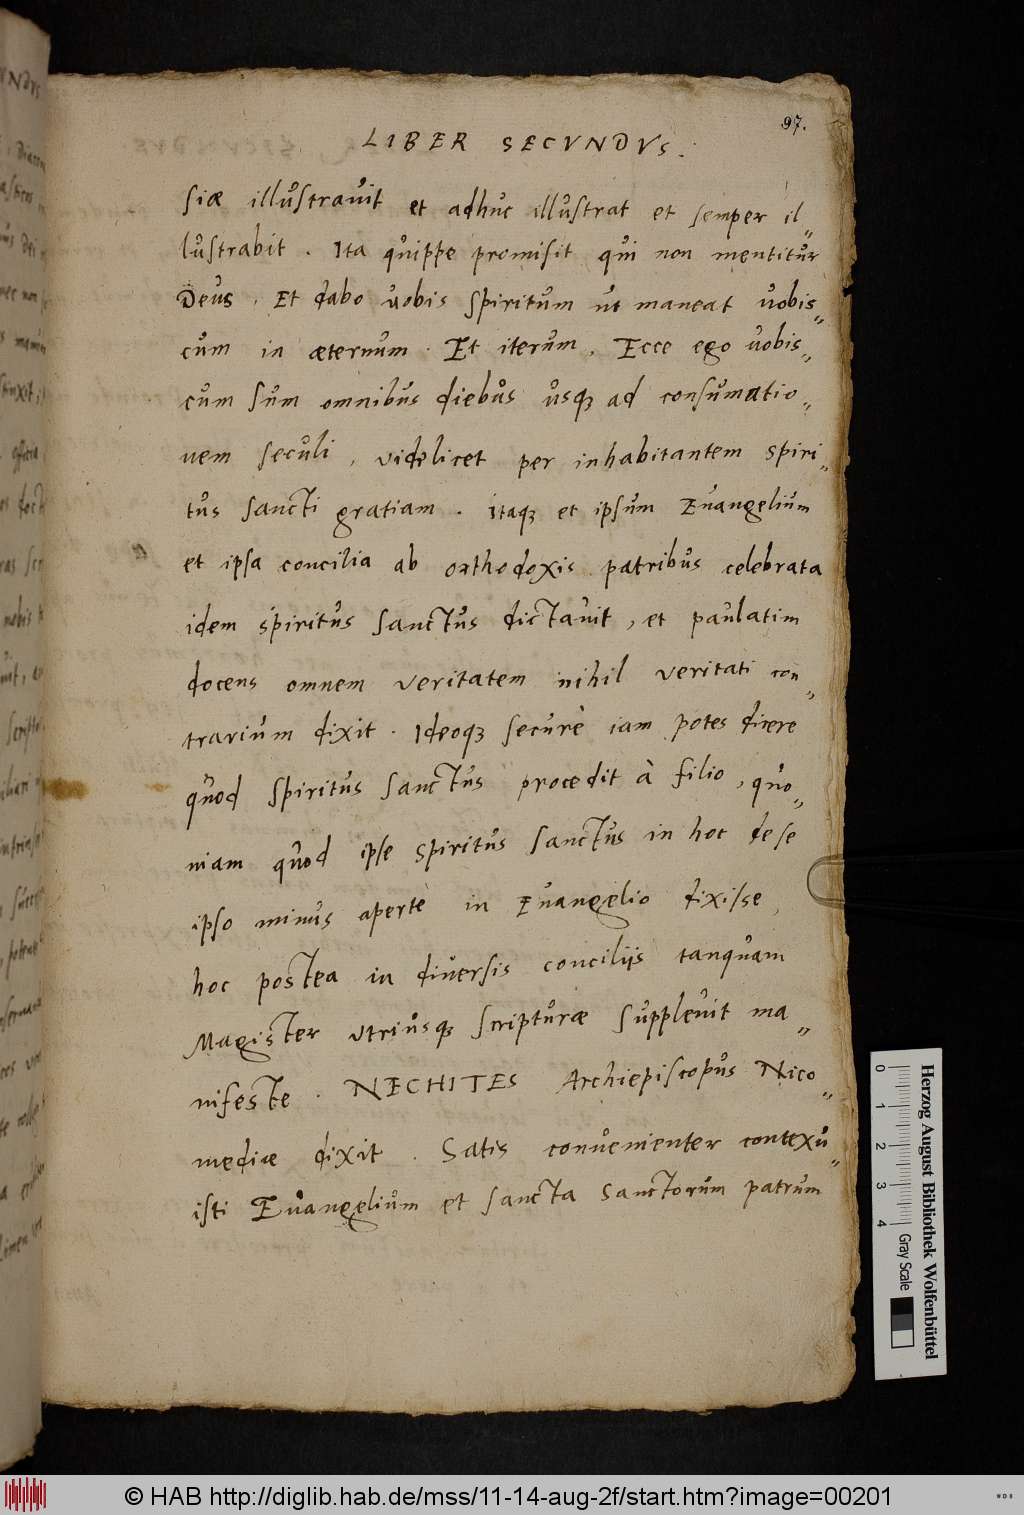 97.
LIBER SECVNDVS.
siæ illustrauit et adhuc illustrat et semper il„
lustrabit. Ita quippe promisit qui non mentitur
Deus. Et dabo uobis spiritum ut maneat uobis„
cum in æternum. Et iterum, Ecce ego uobis„
cum sum omnibus diebus usqȝ ad consumatio„
nem seculi, videlicet per inhabitantem spiri„
tus sancti gratiam. Itaqȝ et ipsum Euangelium
et ipsa concilia ab orthodoxis patribus celebrata
idem spiritus sanctus dictauit, et paulatim
docens omnem veritatem nihil veritati con„
trarium dixit. Ideoqȝ securè iam potes dicere
quod spiritus sanctus procedit à filio, quo„
niam quod ipse spiritus sanctus in hoc de se
ipso minus apertè in Euangelio dixisse,
hoc postea in diuersis conciliis tanquam
Magister vtriusqȝ scripturæ suppleuit ma„
nifeste. NECHITES Archiepiscopus Nico„
mediæ dixit. Satis conuenienter contexu„
isti Euangelium et sancta sanctorum patrum
Herzog August Bibliothek Wolfenbüttel
0 1 2 3 4 Gray Scale
© HAB http://diglib.hab.de/mss/11-14-aug-2f/start.htm?image=00201